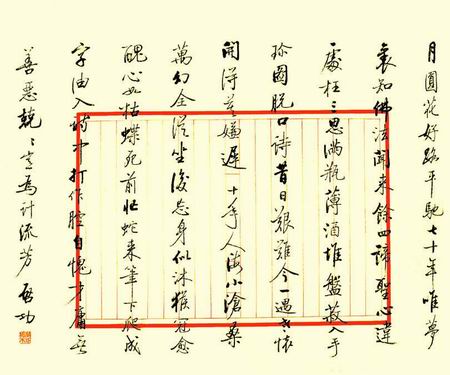 月圓花好路平馳七十年唯夢
裏知佛法聞來餘四諦聖心違
處枉三思滿瓶薄酒堆盤菽入手
珍圖脫口詩昔日艱難今一遇老懷
開得莫嫌遲 七十年人海小滄桑
萬幻全從坐後忘身似沐猴冠愈
醜心如枯蝶死前忙蛇來筆下爬成
字油入詩中打作腔自愧才庸無
善惡兢〻豈為計流芳 啟功